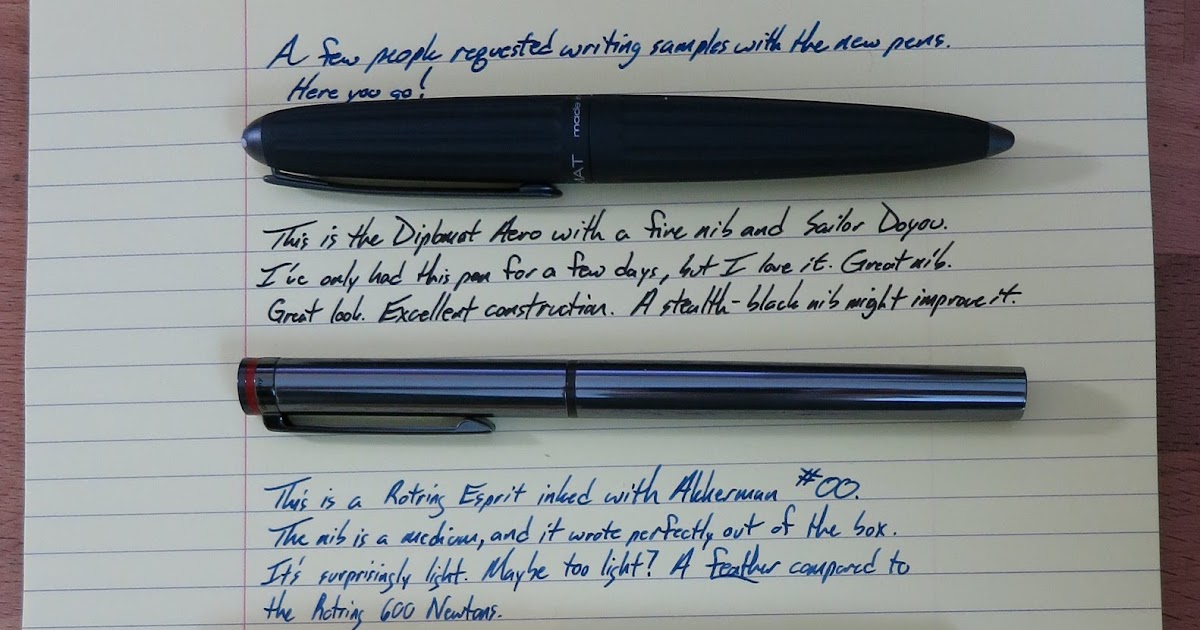 A few people requested writing samples with the new pens.
Here you go!
made
MAT
This is the Diplomat Aero with a fine nib and Sailor Doyou.
I've only had this pen for a few days, but I love it. Great nib.
Great look. Excellent construction. A stealth-black nib might improve it.
This is a Rotring Esprit inked with Akkerman #00.
The nib is a medium, and it wrote perfectly out of the box.
It's surprisingly light. Maybe too light? A feather compared to
the Rotring 600 Newtons.